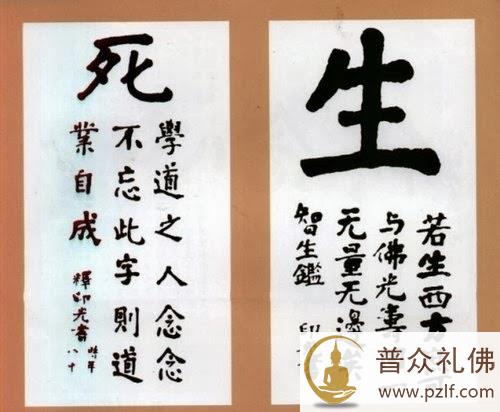 生
若生西方可
与佛光壽
无量无邊矣
智生鑑 印
死
學道之人念念
不忘此字則道
業自成 釋印光書 時年
八十
普众礼佛
www.pzlf.com